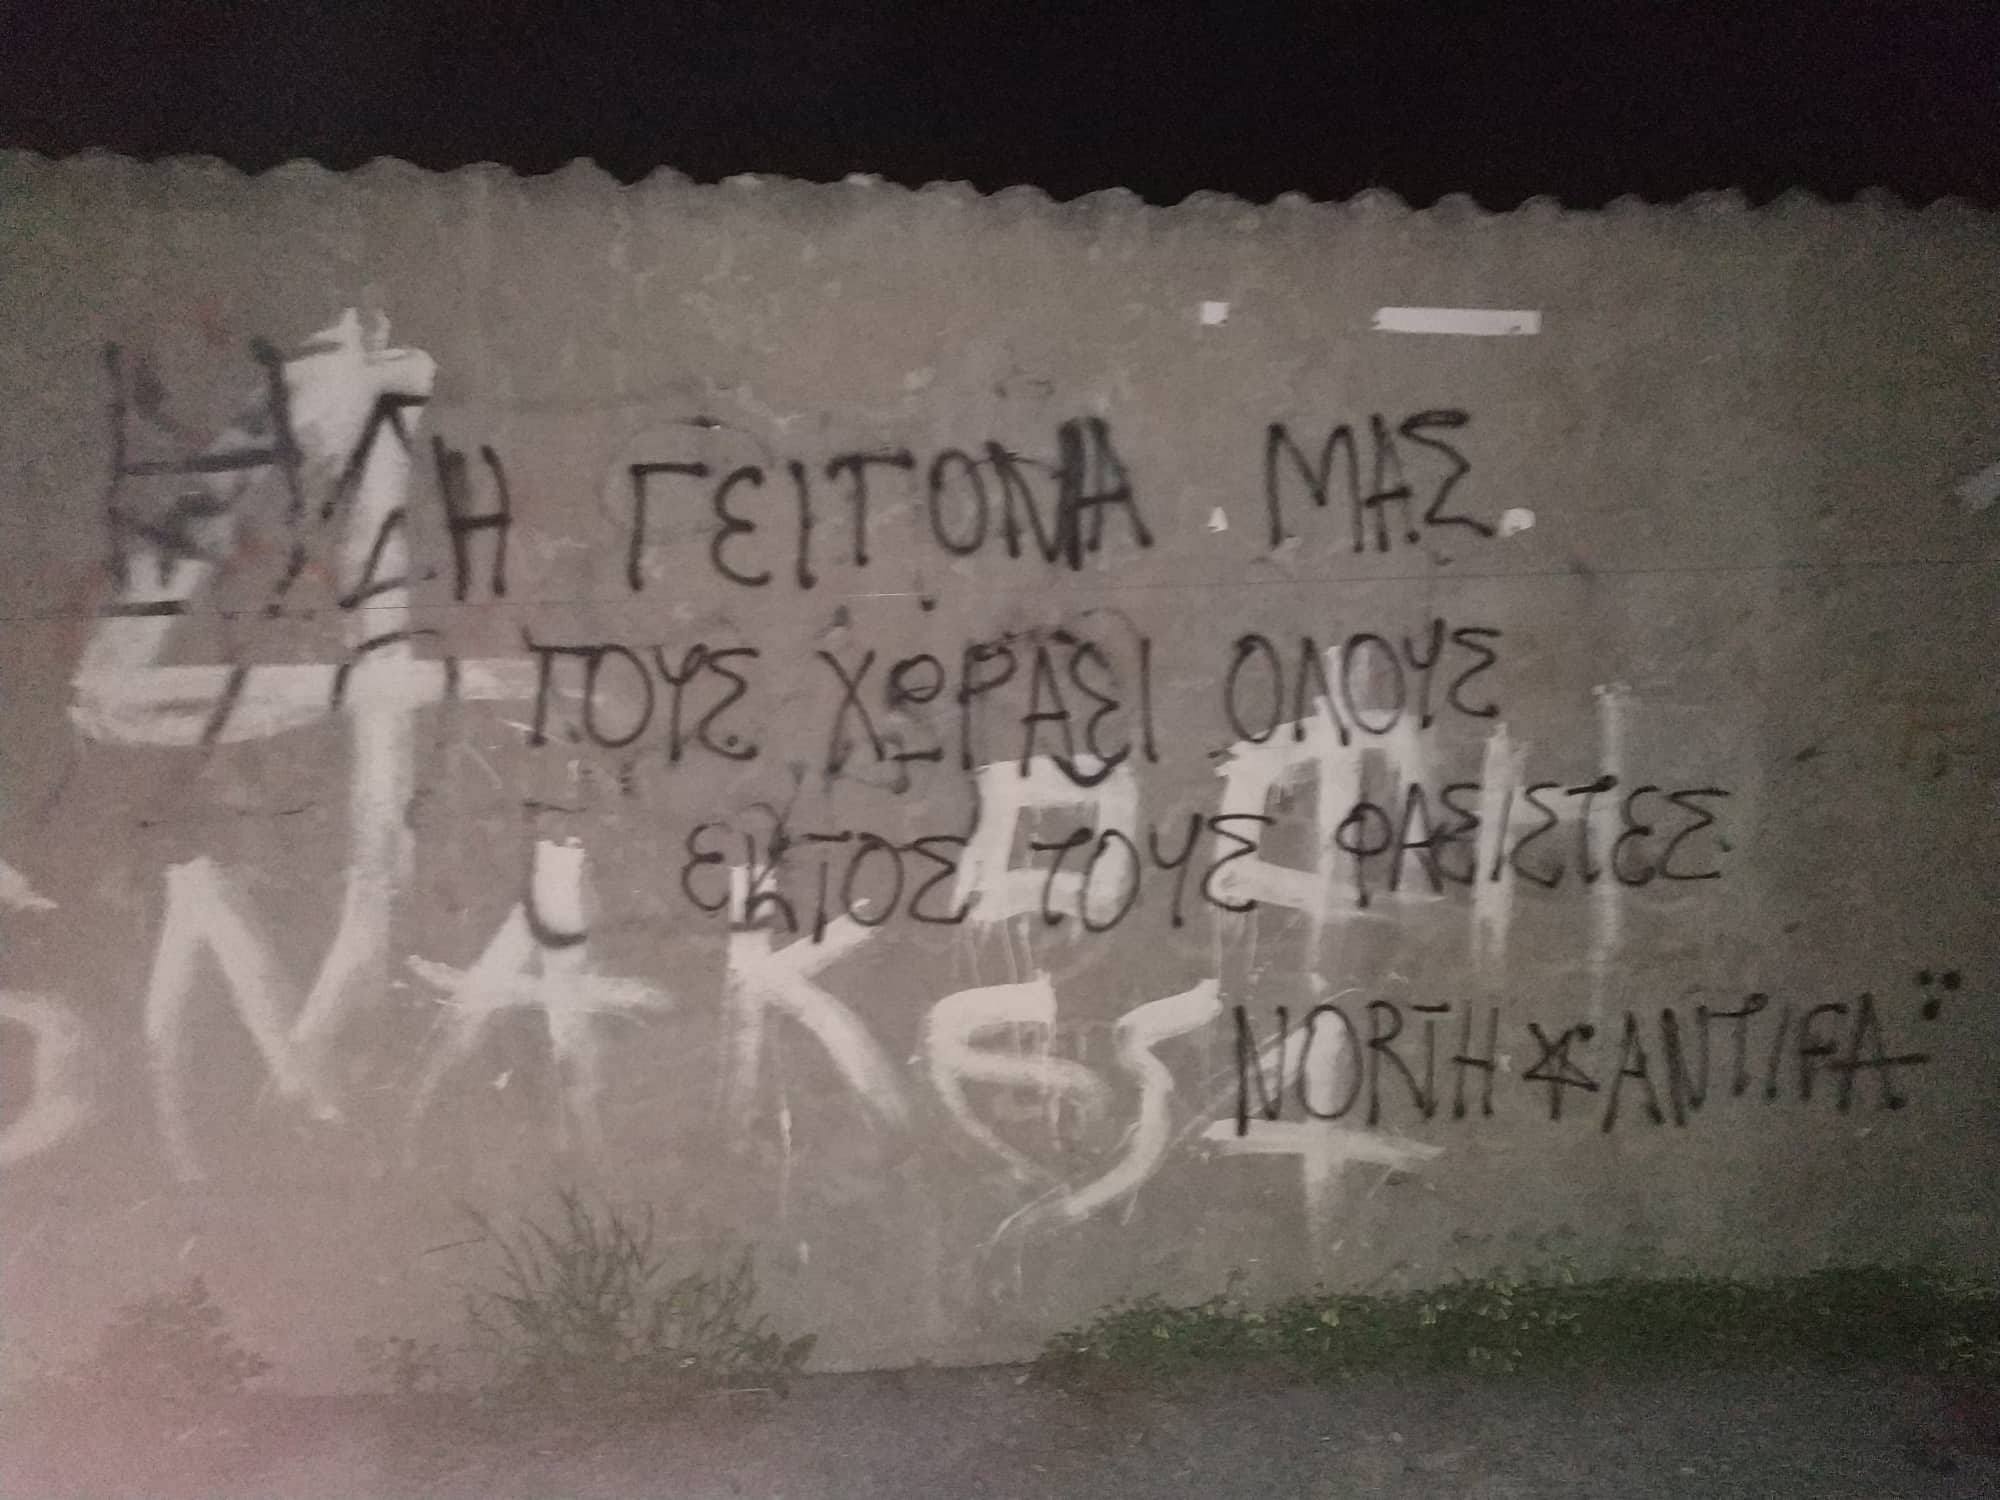 Η ΓΕΙΤΟΝΙΑ ΜΑΣ
ΤΟΥΣ ΧΩΡΑΕΙ ΟΛΟΥΣ
ΕΚΤΟΣ ΤΟΥΣ ΦΑΣΙΣΤΕΣ
SNAKES
NORTH ANTIFA